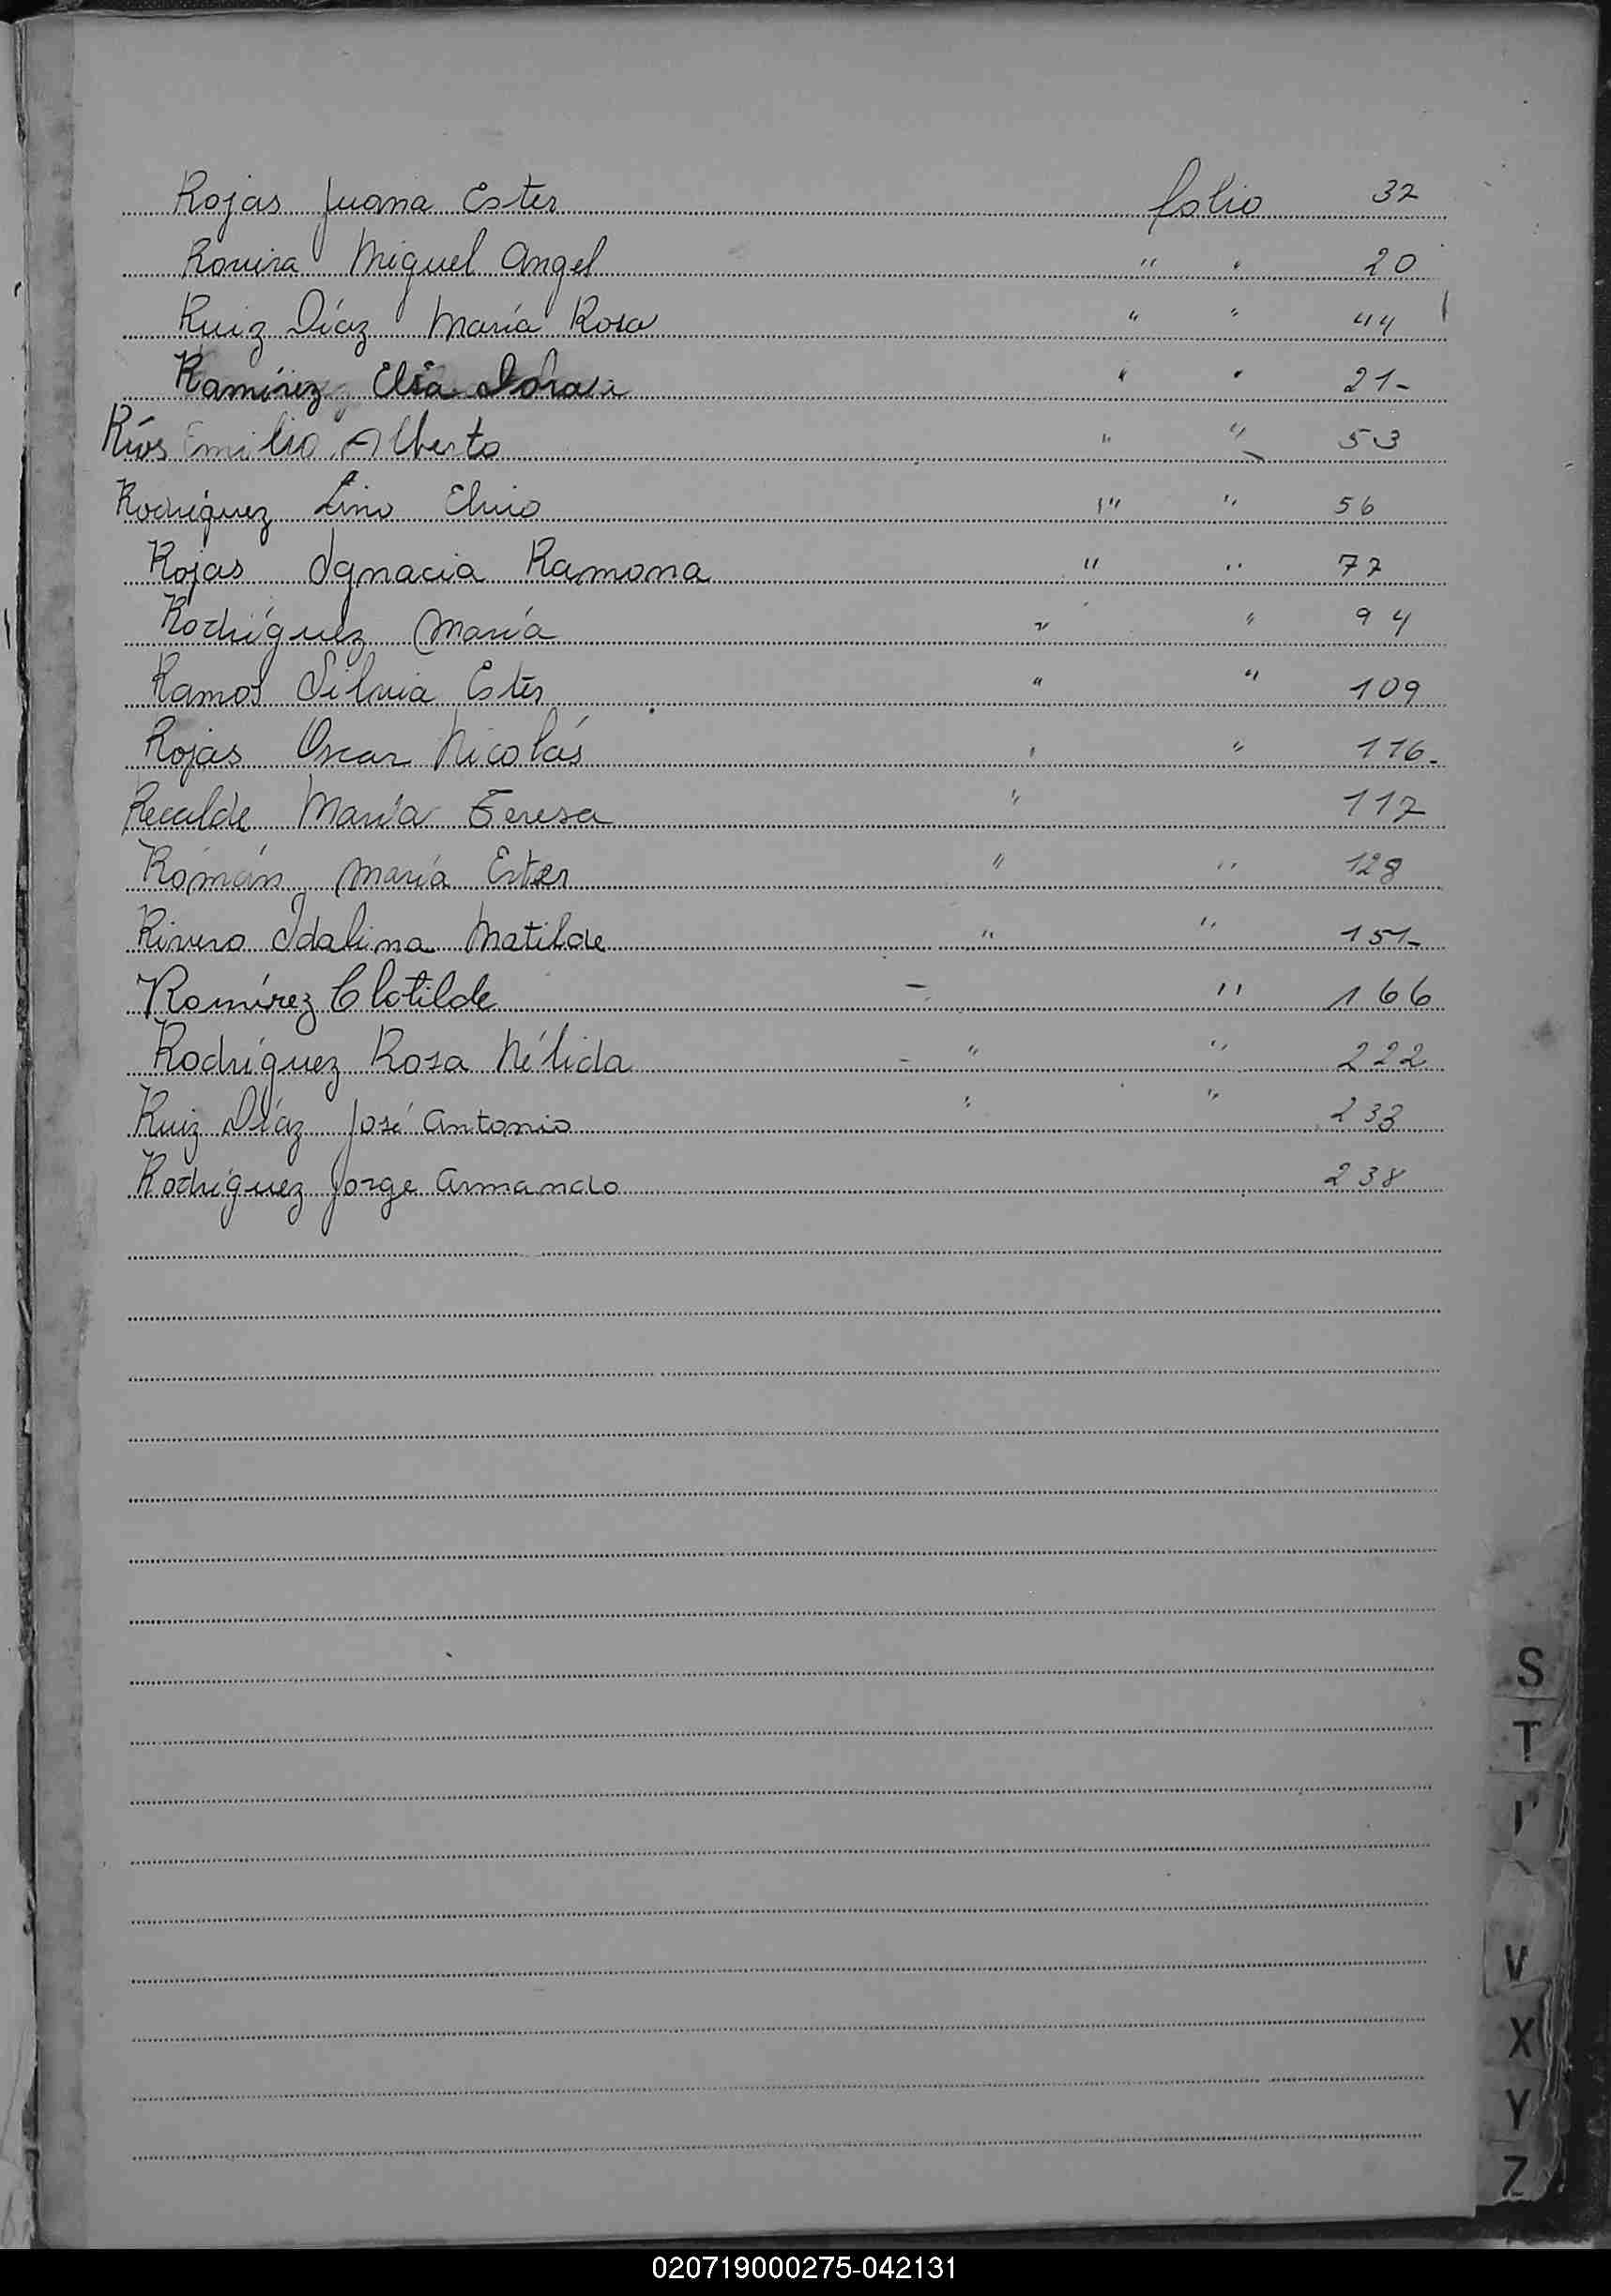 Rojas Juana Ester folio 32
Rovira Miguel Angel " " 20
Ruiz Díaz María Rosa " " 44
Ramírez Elsa " " 21-
Ríos Emilio Alberto " " 53
Rodríguez Lino Elvio " " 56
Rojas Ignacia Ramona " " 77
Rodríguez María " " 94
Ramos Silvia Ester " " 109
Rojas Oscar Nicolás " " 116-
Recalde María Teresa " 117
Román María Ester " " 128
Rivero Idalina Matilde " " 151-
Ramírez Clotilde - " 166
Rodríguez Rosa Nélida - " " 222
Ruiz Díaz José Antonio " " 233
Rodríguez Jorge Armando 238
S
T
V
X
Y
Z
020719000275-042131